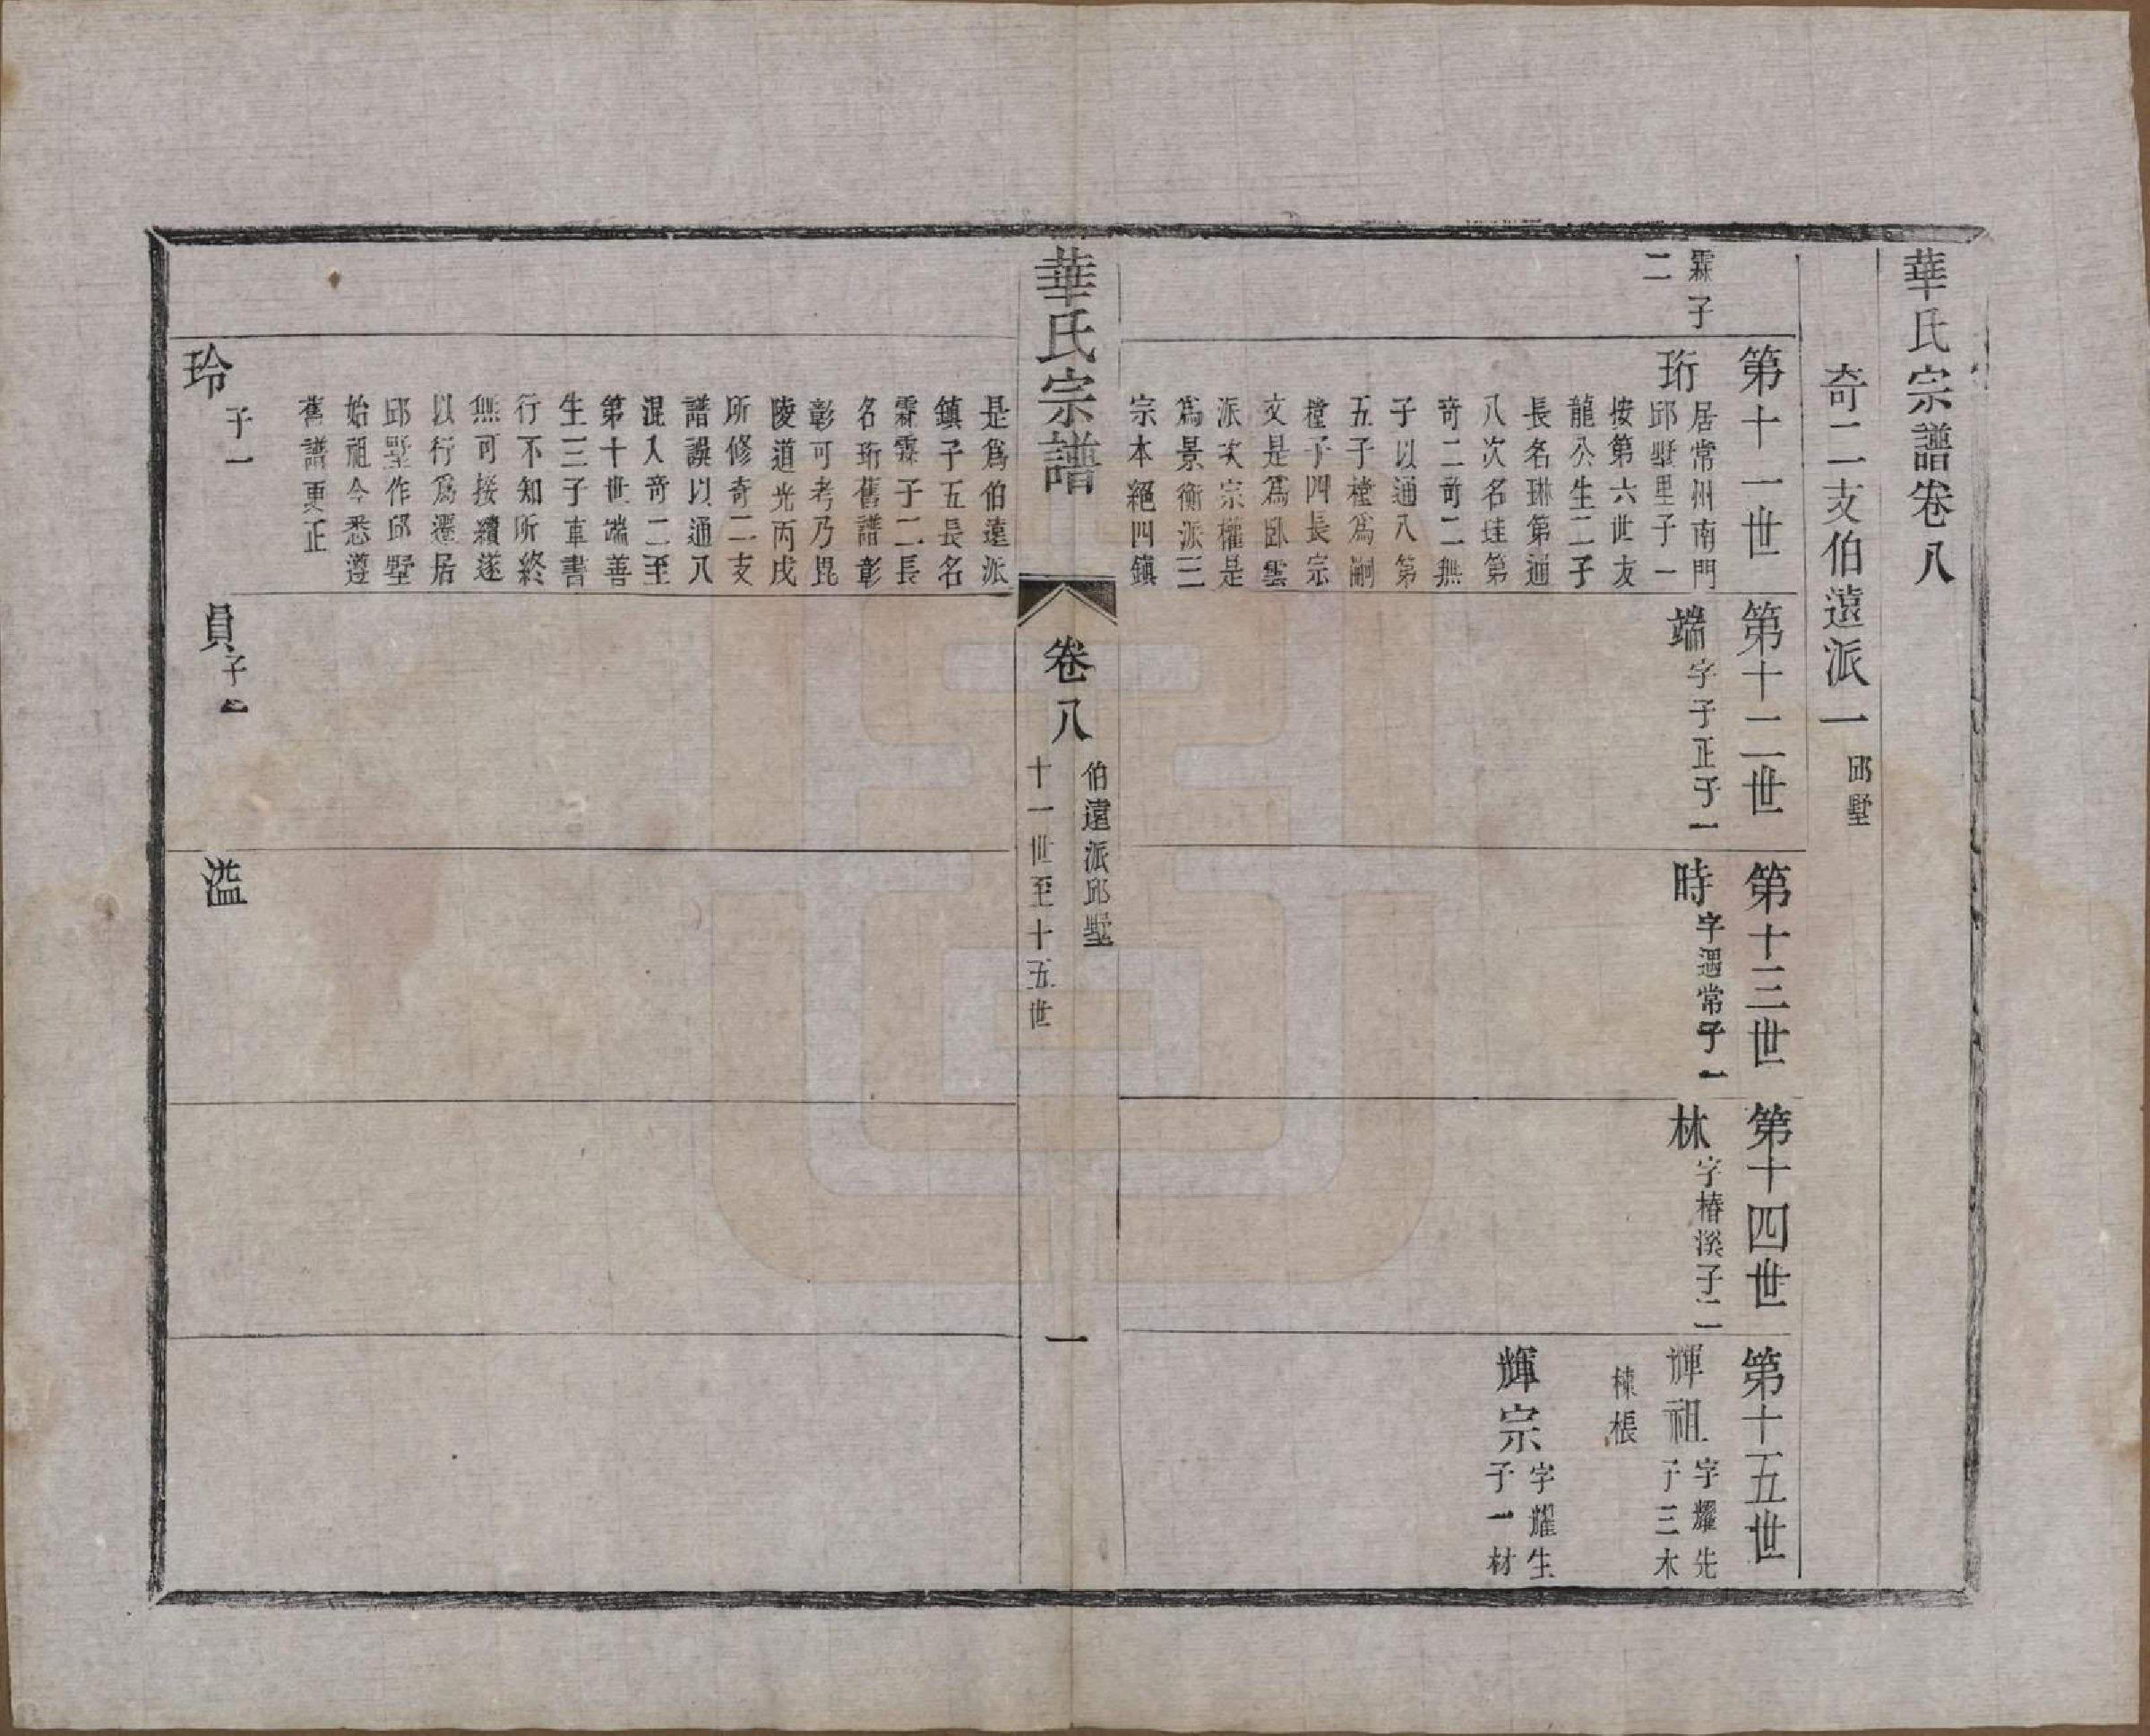 華氏宗譜卷八
奇二支伯遠派一 邱墅
霖子
二
第十一世
珩 居常州南門
邱墅里子一
按第六世友
龍公生二子
長名琳第通
八次名珪第
奇二奇二無
子以通八第
五子樘爲嗣
樘子四長宗
文是爲臥雲
派次宗權是
爲景衡派三
宗本絕四鎮
第十二世
端 字子正子一
第十三世
時 字遇常子一
第十四世
林 字椿溪子二
第十五世
輝祖 字耀先
子三木
棟棖
輝宗 字耀生
子一材
華氏宗譜 卷八 伯遠派邱墅
十一世至十五世
一
是爲伯遠派
鎮子五長名
霖霖子二長
名珩舊譜彰
彰可考乃毘
陵道光丙戌
所修奇二支
譜誤以通八
混入奇二至
第十世端善
生三子車書
行不知所終
無可接續遂
以行爲遷居
邱墅作邱墅
始祖今悉遵
舊譜更正
玲 子一
員 子一
溢